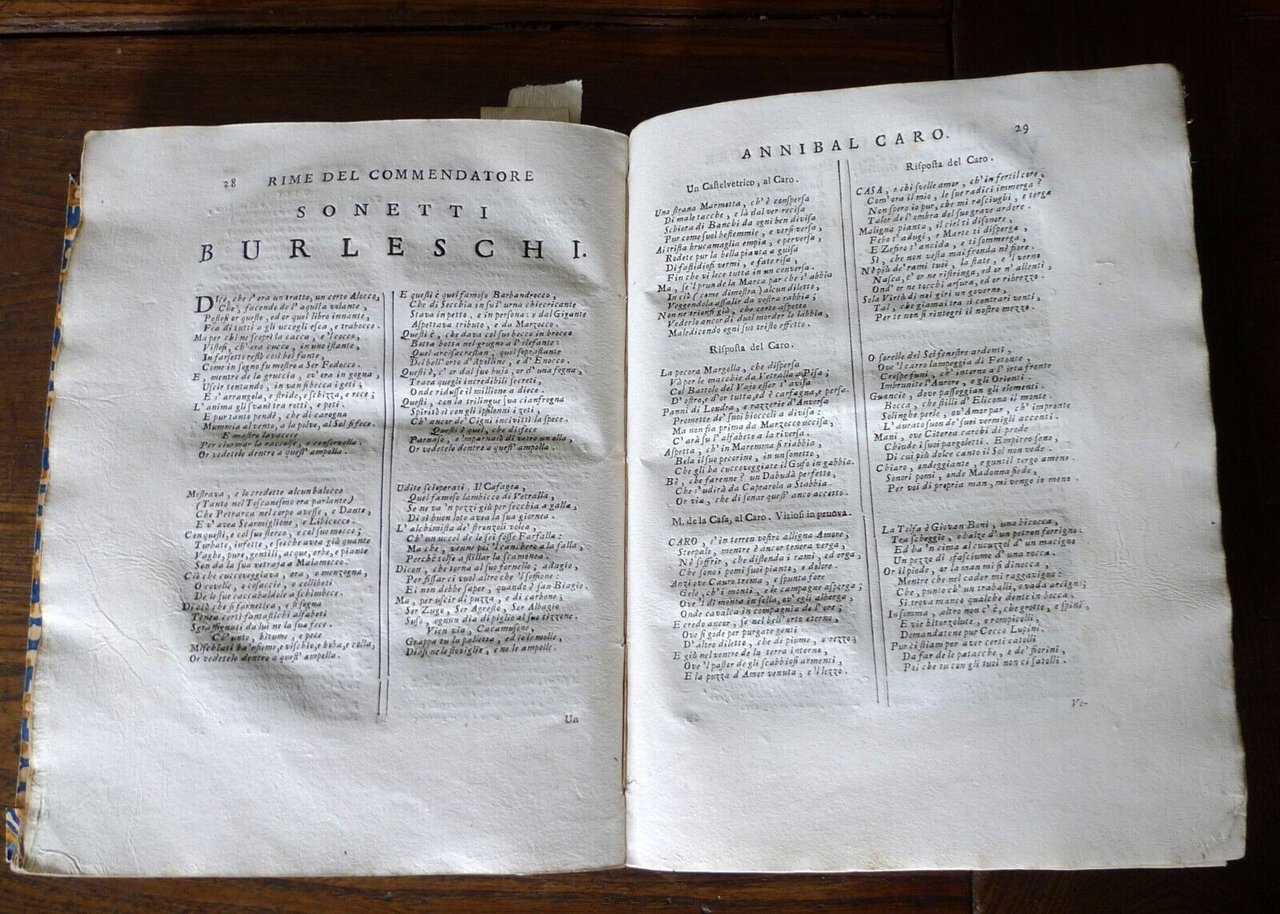 28 RIME DEL COMMENDATORE
SONETTI
BURLESCHI.
Dice, che c'era un tratto, un certo Alocco,
Che, facendo de l'aquila volante,
Postosi or questo, ed or quel libro innante,
Fea di tutti a gli uccegli esca, e trabocco.
Ma per chi ne scoprì la cacca, e 'l cocco,
Vistosi, ch'era cucco, in uno istante,
In farsetto restò così bel fante,
Come in segno fu mostro a Ser Fedocco.
E, mentre de la gruccia, ov'era in gogna,
Uscir tentando, in van si becca i geti;
E s'arrangola, e stride, e schizza, e rece;
L'anima gli svanì tra rotti, e peti:
E pur tanto pendè, che di carogna
Mummia al vento, a la polve, al Sol si fece.
E mastro lavacece
Per ciurmar la raccolse, e conservolla.
Or vedetelo dentro a quest' ampolla.
Mostrava, e lo credette alcun balocco
(Tanto nel Toscanesmo era parlante)
Che Petrarca nel corpo avesse, e Dante,
E v'avea Scarmiglione, e Libicocco.
Con questi, e col suo sterco, e col suo moccо;
Turbate, infette, e secche avea già quante
Vaghe, pure, gentili, acque, erbe, e piante
Son da la sua vetraja a Malamocco.
Ciò che cuccoveggiava, era, o menzogna,
O covelle, o cosaccie, o collibeti
De le sue caccabaldole a schimbece.
Di ciò che si farnetica, e si sogna
Tenea certi fantastichi alfabeti
Sgraffignati du lui ne la sua fece.
Ch'unto, bitume, e pece
Mischiasi ha'nsieme, e vischio, e boba, e colla,
Or vedetelo dentro a quest' ampolla.
E questi è quel famoso Barbandrocco,
Che di Secchia in su l'urna chiericcante
Stava in petto, e in persona: e dal Gigante
Aspettava tributo, e da Marzocco.
Questi è, che dava col suo becco in brocco
Botta botta nel grugno a l'elefante:
Quel arcifacrestan, quel soprastante
Del bell'orto d'Apolline, e d'Enocco.
Questi è, c'or dal suo bujo, or d'una fogna,
Traea quegli incredibili secreti,
Onde ridusse il millione a diece.
Questi, con la trilingue sua cianfrogna
Spiritò sì con gli ipsilonni i zeti,
Ch'ancor de' Cigni incivittì la spece.
Questi è quel, che disfece
Parnaso, e 'mparnassò di vetro un olla,
Or vedetelo dentro a quest' ampolla.
Udite scioperati. Il Cafagea,
Quel famoso lambicco di Vetralla,
Se ne va 'n pezzi giù per secchia a galla,
Di sì buon loto avea la sua giornea.
L'alchimista de' stronzoli volea,
Ch'un uccel de le sei fosse Farfalla:
Ma che, venne poi 'l canchero a la falla,
Perchè tolse a stillar la scamonea.
Dicon, che torna al suo fornello; adagio,
Per fissar ci vuol altro che 'l soffione:
Ei non debbe saper, quando è san Biagio.
Ma, per uscir di puzza, e di carbone;
Ser Zugo, Ser Agresto, Ser Albagio
Suso, ognun dia di piglio al suo tizzone.
Vien via, Catamusone,
Grappa tu la palletta, ed io le molle,
Diasi ne le stoviglie, e ne le ampolle.
Un
ANNIBAL CARO. 29
Un Castelvetrico, al Caro.
Una strana Marmotta, ch'è conspersa
Di male tacche, e là dal ver recisa
Schiera di Banchi da ogni ben divisa
Pur come suol bestemmie, e versi versa,
Ai trista brucamaglia empia, e perversa,
Rodete pur la bella pianta a guisa
Di fastidiosi vermi, e fate risa,
Fin che vi lece tutta in un conversa.
Ma, se 'l prun de la Marca par che s'abbia
In ciò (come dimostra) alcun diletto,
Veggendola assalir da vostra rabbia;
Non ne trionfi già, che certo aspetto
Vederlo ancor di duol morder le labbia,
Maledicendo ogni suo tristo effetto.
Risposta del Caro.
La pecora Margolla, che dispersa
Và per le macchie da Vetralla a Pisa;
Col Battolo del Vopo esser s'avisa
D'ostro, e d'or tutta, ed è carfagna, e persa.
Panni di Londra, e razzerie d'Anversa
Promette de' suoi bioccoli a divisa:
Ma non fia prima da Marzocco uccisa,
C'arà su l'alfabeto a la riversa.
Aspetta, ch'in Maremma si riabbia,
Bela il suo pecorino, in un sonetto,
Che gli ha cuccoveggiato il Gufo in gabbia.
Bè, che farenne? un Dabudà perfetto,
Che s'udirà da Caprarola a Stabbia.
Or via, che di sonar quest' anco accetto.
M. de la Casa, al Caro. Viziosi in pruova.
CARO, s'in terren vostro alligna Amore,
Sterpalo, mentre è ancor tenera verga;
Nè soffrir, che distenda i rami, ed erga,
Che sono i pomi suoi pianto, e dolore.
Anzi ove Cauro trema, e spunta fore
Gelo, ch'i monti, e le campagne asperga;
Ov' è 'l dì monta in sella, ov' egli alberga,
Onde cavalca in compagnia de l'ore;
E credo ancor, se nel bell'orto eterno,
Ove si gede per purgate genti
D'altro diletto, che di piume, o rezzo;
E giù nel ventre de la terra interno,
Ove 'l pastor de gli scabbiosi armenti,
E la puzza d'Amor venuta, e 'l lezzo.
Risposta del Caro.
CASA, e chi svelle amor, ch'in fertil core,
Com'ora il mio, le sue radici immerga?
Non spero io pur, che mi rasciughi, e terga
Talor de l'ombra del suo grave ardore.
Maligna pianta, il ciel ti disonore,
Febo t'adugi, e Marte ti disperga,
E Zefiro t'ancida, e ti sommerga,
Sì, che non vesta mai fronda nè fiore.
Nè più de' rami tuoi, la state, e 'l verno
Nasca, c'or ne ristringa, ed or n' allenti,
Ond'or ne tocchi arsura, ed or ribrezzo
Sola Virtù de' miei giri un governo,
Tal, che giamai tra sì contrari venti,
Per te non si rintegri il nostro mezzo.
O sorelle del Sol fenestre ardenti,
Ove 'l carro lampeggia di Fetonte,
Crespe funi, ch'intorno a l'irta fronte
Imbrunite l'Aurore, e gli Orienti.
Guancie, dove passeggian gli elementi.
Bocca, che stilli d'Elicona il monte.
Solinghe perle, ov'Amor par, ch'impronte
L'aurato suon de' suoi vermigli accenti.
Mani, ove Citerea carchi di prede
Chiude i suoi pargoletti. Empireo seno,
Di cui più dolce canto il Sol non vede.
Chiaro, ondeggiante, e guntil tergo ameno.
Sonori pomi, onde Madonna siede,
Per voi di propria man, mi vengo io meno.
La Tolfa è Giovan Boni, una bicocca,
Tra scheggie, e balze d'un petron ferrigno:
Ed ha'n cima al cucuzzol d'un macigno
Un pezzo di sfasciume d'una rocca.
Or il piede, or la man mi si dinocca,
Mentre che nel cader mi raggavigno:
Che, punto ch'un traballi, o vada arcigno;
Si trova manco qualche dente in bocca.
Insomma, altro non c'è, che grotte, e spini,
E vie bitorzolute, e rompicolli,
Domandatene pur Cecco Lupini.
Pur ti stiam per aver certi catolli
Da far de le patacche, e de' fiorini,
Poi che tu con gli tuoi non ci satolli.
Ve-